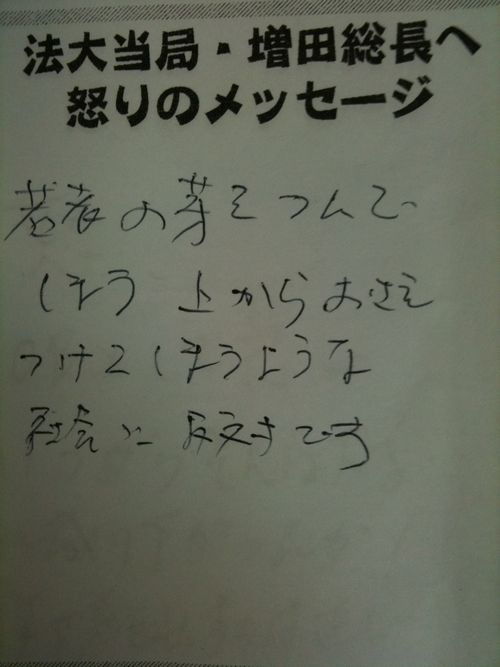 法大当局・増田総長へ
怒りのメッセージ
若者の芽をつんで
しまう 上からおさえ
つけてしまうような
社会に反対です